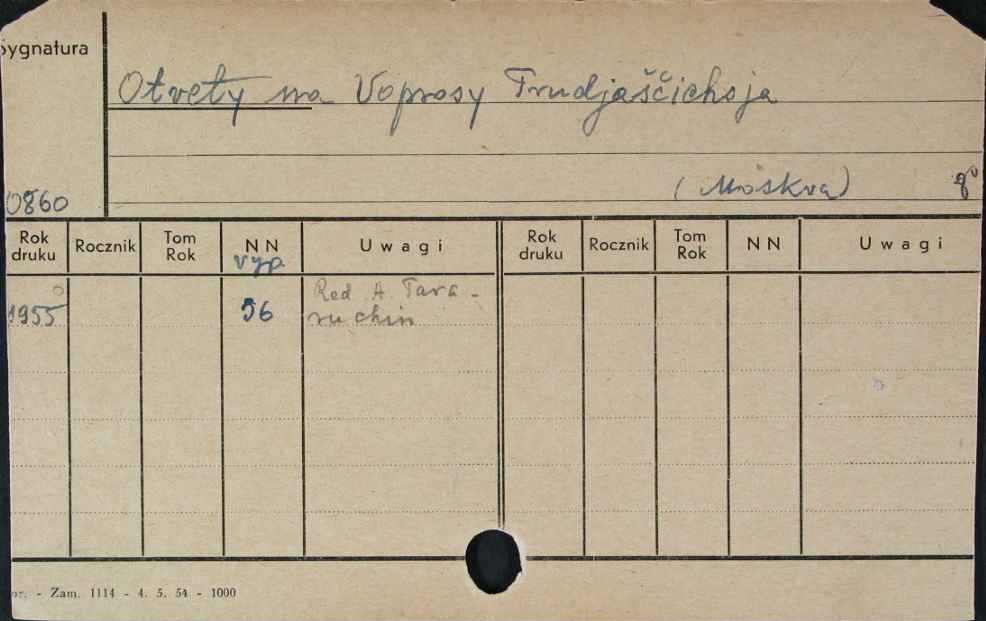 Sygnatura
Otvety na Voprosy Trudjaščichsja
(Moskva) 8º
0860
Rok druku Rocznik Tom Rok NN vyp. Uwagi Rok druku Rocznik Tom Rok NN Uwagi
1955 56 Red A. Tara-
ruchin
Zam. 1114 - 4. 5. 54 - 1000